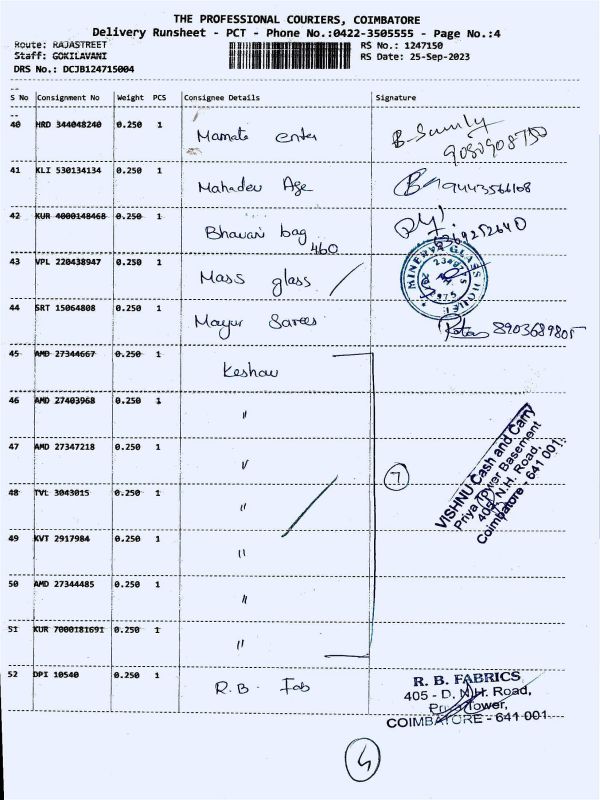 THE PROFESSIONAL COURIERS, COIMBATORE
Delivery Runsheet - PCT - Phone No.:0422-3505555 - Page No.:4
Route: RAJASTREET
RS No.: 1247150
Staff: GOKILAVANI
RS Date: 25-Sep-2023
DRS No.: DCJB124715004
S No Consignment No Weight PCS Consignee Details Signature
40 HRD 344048240 0.250 1 Mamata enter
9080908750
41 KLI 530134134 0.250 1 Mahadev Age 9443566108
42 KUR 4000148468 0.250 1 Bhavani bag 6369252640
460
43 VPL 220438947 0.250 1 Mass glass MINERVA GLASS HOUSE
44 SRT 15064808 0.250 1 Mayur Sarees 8903689805
45 AMD 27344667 0.250 1 Keshav
46 AMD 27403968 0.250 1 "
47 AMD 27347218 0.250 1 "
7
VISHNU Cash and Carry
Priya Tower Basement
405, N.H. Road,
Coimbatore - 641 001.
48 TVL 3043015 0.250 1 "
49 KVT 2917984 0.250 1 "
50 AMD 27344485 0.250 1 "
51 KUR 7000181691 0.250 1 "
52 DPI 10540 0.250 1 R.B. Fab
R. B. FABRICS
405 - D. N.H. Road,
Priya Tower,
COIMBATORE - 641 001